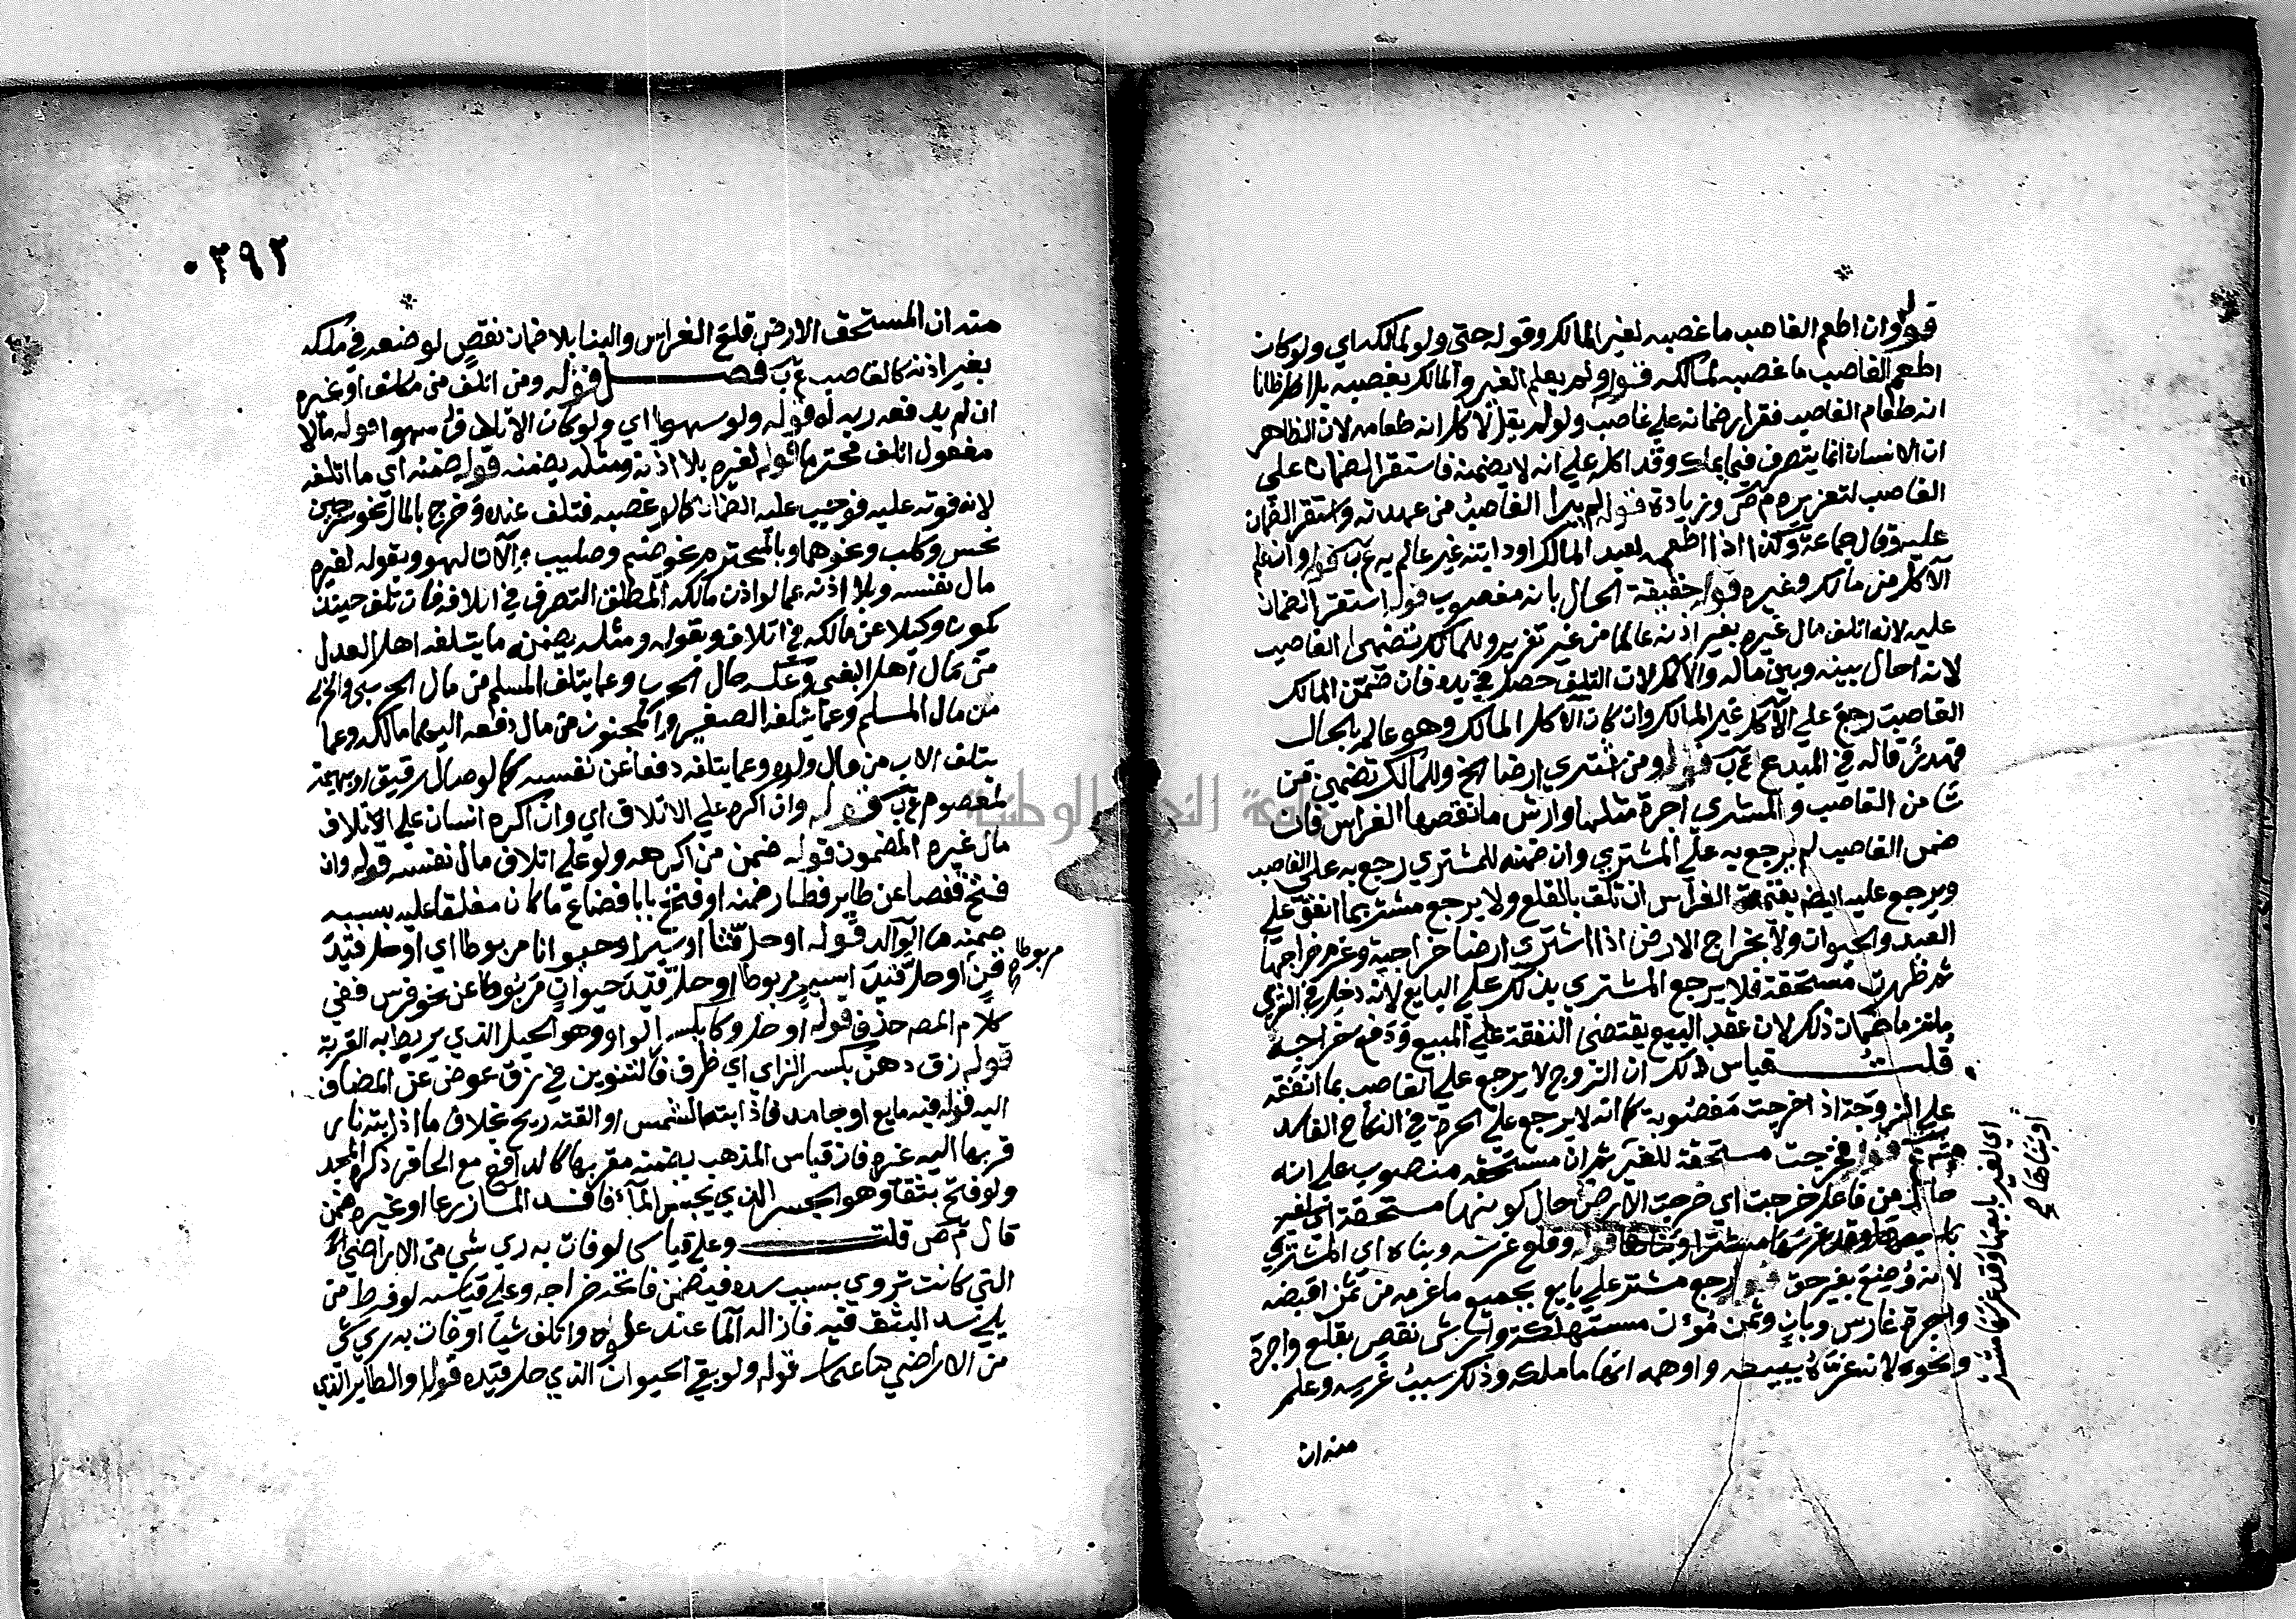 قوله وان اطعم الغاصب ما غصبه لغير المالك وقوله حتى ولو لمالكه اي ولو كان
اطعم الغاصب ما غصبه لمالكه قوله ولم يعلم الغير والمالك بغصبه بل اكله ظانا
انه طعام الغاصب فقرار ضمانه على غاصب ولو لم يقل لاكل انه طعامه لان الظاهر
ان الانسان انما يتصرف فيما يملك وقد اكله على انه لا يضمنه فاستقر الضمان على
الغاصب لتغريره م ص وزيادة قوله لم يبرا الغاصب من عهدته واستقر الضمان
عليه وقال جماعة وكذا اذا اطعمه لعبد المالك او دابته غير عالم به ع ب قوله وان علم
الاكل من مالك وغيره قوله حقيقة الحال بانه مغصوب قوله استقر الضمان
عليه لانه اتلف مال غيره بغير اذنه عالما من غير تغرير وللمالك تضمين الغاصب
لانه احال بينه وبين ماله والاكل لان التلف حصل في يده فان ضمن المالك
الغاصب رجع على الاكل غير المالك وان كان الاكل المالك وهو عالم بالحال
فهدر قاله في المبدع ع ب قوله ومن اشترى ارضا الخ وللمالك تضمين من
شا من الغاصب والمشتري اجرة مثلها وارش ما نقصها الغراس فان
ضمن الغاصب لم يرجع به على المشتري وان ضمنه للمشتري رجع به على الغاصب
ويرجع عليه ايضا بقيمة الغراس ان تلف بالقلع ولا يرجع مشتر بما انفق على
العبد والحيوان ولا بخراج الارض اذا اشترى ارضا خراجية وغرم خراجها
ثم ظهرت مستحقة فلا يرجع المشتري بذلك على البايع لانه دخل في الشرى
ملتزما ضمان ذلك لان عقد البيع يقتضي النفقة على المبيع ودفع خراجه
قلت قياس ذلك ان الزوج لا يرجع على الغاصب بما انفقه
على الزوجة اذا خرجت مغصوبة كما انه لا يرجع على الحرة في النكاح الفاسد
قوله فخرجت مستحقة للغير ثم ان مستحقه منصوب على انه
حال من فاعل خرجت اي خرجت الارض حال كونها مستحقة اي لغير
بايعها وقد غرسها مشتر او بناها قوله وقلع غرسه وبناه اي المشتري
لانه وضع بغير حق قوله رجع مشتر على بايع بجميع ما غرمه من ثمن اقبضه
واجرة غارس وبان وثمن مؤن مستهلكة وارش نقص بقلع واجرة
ونحوه لانه غره ببيعه واوهمه انها ملكه وذلك سبب غرسه وعلم
منه ان
اي لغير بايعها وقد غرسها مشتر
او بناها صح
٠٣٩٢
منه ان المستحق الارض قلع الغراس والبنا بلا ضمان نقص لوضعه في ملكه
بغير اذنه كالغاصب ع ب فصل قوله ومن اتلف من مكلف او غيره
ان لم يدفعه ربه له قوله ولو سهوا اي ولو كان الاتلاف سهوا قوله مالا
مفعول اتلف محترما قوله لغيره بلا اذنه ومثله يضمنه قوله ضمنه اي ما اتلفه
لانه فوته عليه فوجب عليه الضمان كما لو غصبه فتلف عنده وخرج بالمال نحو سرجين
نجس وكلب ونحوهما وبالمحترم نحو صنم وصليب والات لهو وبقوله لغيره
مال نفسه وبلا اذنه عما لو اذن مالكه المطلق التصرف في اتلافه فان تلف حينئذ
يكون وكيلا عن مالكه في اتلافه وبقوله ومثله يضمنه ما يتلفه اهل العدل
من مال اهل البغي وعكسه حال الحرب وعما يتلف المسلم من مال الحربي والحربي
من مال المسلم وعما يتلفه الصغير والمجنون من مال دفعه اليهما مالكه وعما
يتلف الاب من مال ولده وعما يتلفه دفعا عن نفسه كما لو صال رقيق او بهيمة
لمعصوم ع ب قوله وان اكره على الاتلاف اي وان اكره انسان على اتلاف
مال غيره المضمون قوله ضمن من اكرهه ولو على اتلاف مال نفسه قوله وان
فتح قفصا عن طاير فطار ضمنه او فتح بابا فضاع ما كان مغلقا عليه بسببه
ضمنه قوله او حل قنا او اسيرا او حيوانا مربوطا اي او حل قيد
قن او حل قيد اسير مربوطا او حل قيد حيوان مربوطا عن نحو فرس ففي
مربوطا صح
كلام المصه حذف قوله او حل وكا بكسر الواو وهو الحبل الذي يربط به القربة
قوله زق دهن بكسر الزاي اي ظرف فالتنوين في زق عوض عن المضاف
اليه قوله فيه مايع او جامد فاذابته الشمس او القته ريح بخلاف ما اذابته نار
قربها اليه غيره فان قياس المذهب يضمنه مقربها كالدافع مع الحافر ذكره المجد
ولو فتح بثقا وهو الجسر الذي يحبس الماء فافسد الما زرعا او غيره ضمن
قال م ص قلت وعلى قياسه لو فات به ري شي من الاراضي
التي كانت تروى بسبب سده فيضمن فاتحه خراجه وعلى قياسه لو فرط من
يلي سد البثق فيه فازاله الما عند علوه واتلف شيا او فات به ري شي
من الاراضي قوله ولو بقي الحيوان الذي حل قيده قوله والطاير الذي